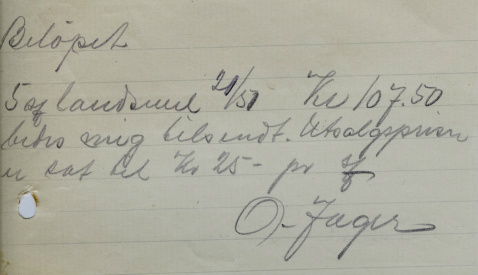 Beløpet
5 sf landsmel 21/51 Kr 107.50
bedes mig tilsendt. Utsalgsprisen
er sat til Kr 25- pr sf
O. Jager